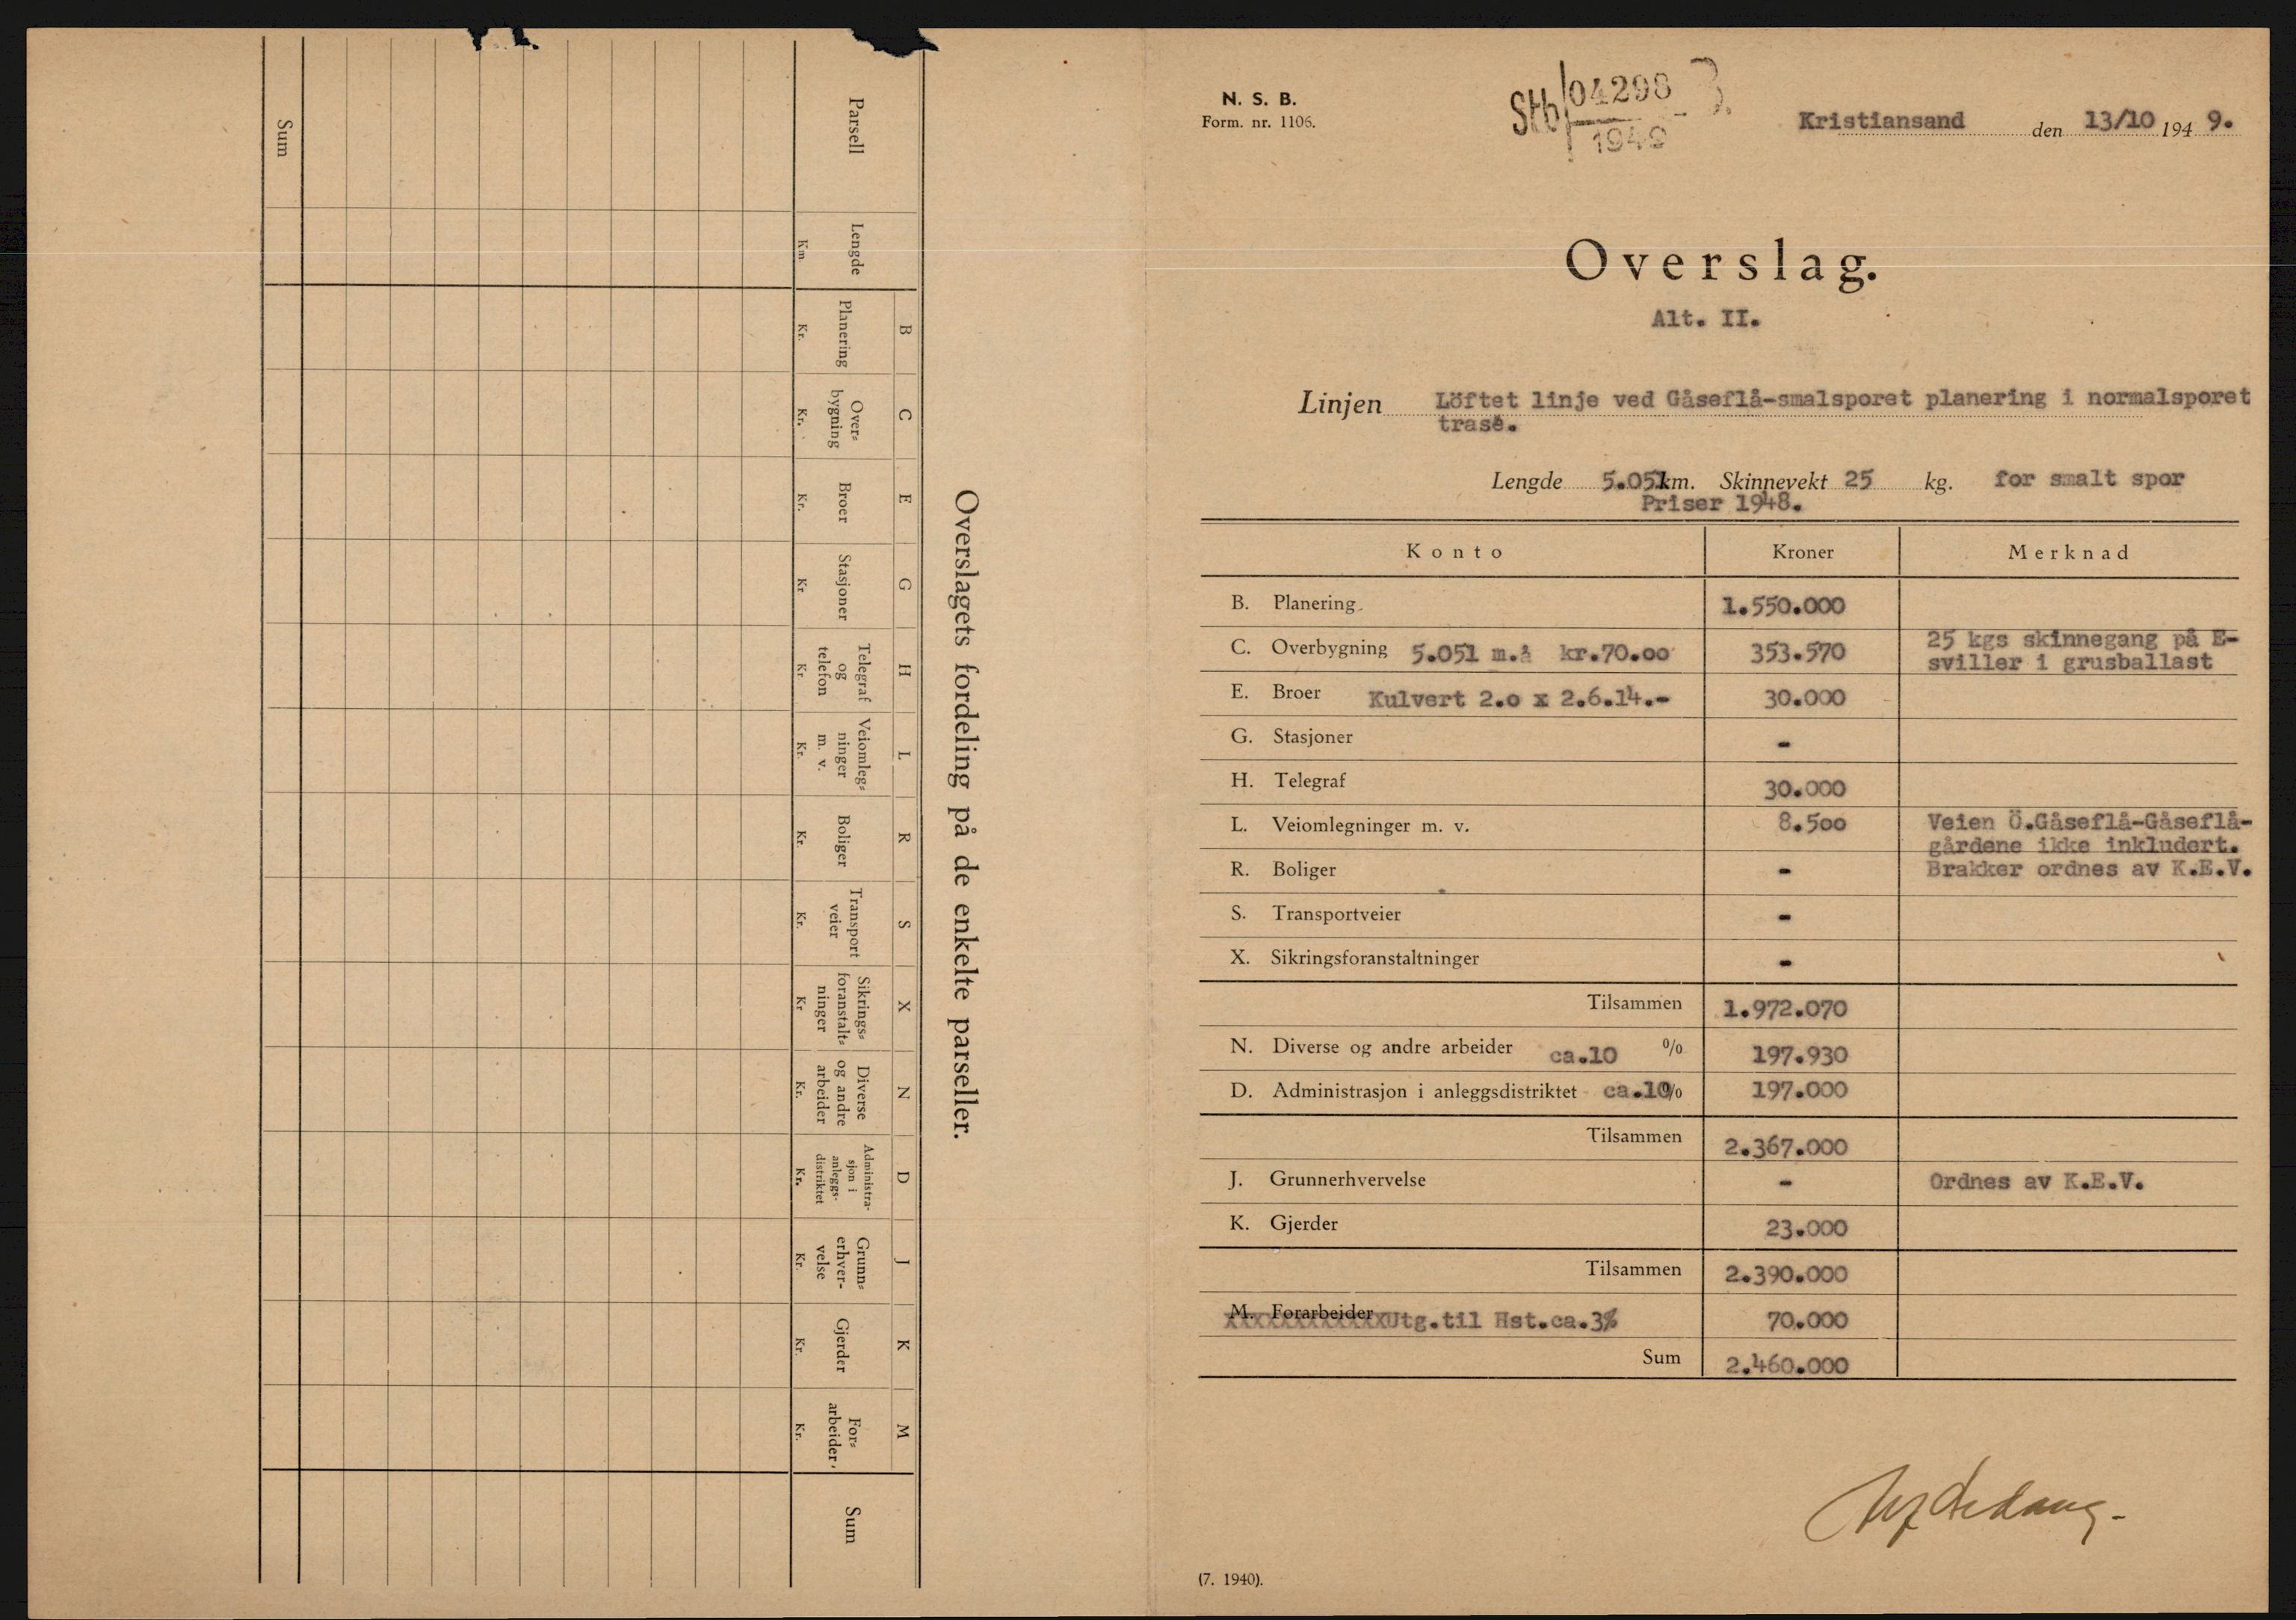 Overslagets fordeling på de enkelte parseller.
B C E G H L R S X N D J K M
Parsell
Lengde
Km.
Planering
Kr.
Over-
bygning
Kr.
Broer
Kr.
Stasjoner
Kr
Telegraf
og
telefon
Kr
Veiomleg-
ninger
m. v.
Kr.
Boliger
Kr.
Transport
veier
Kr.
Sikrings-
foranstalt-
ninger
Kr
Diverse
og andre
arbeider
Kr.
Administra-
sjon i
anleggs-
distriktet
Kr.
Grunn-
erhver-
velse
Kr.
Gjerder
Kr.
For-
arbeider
Kr.
Sum
Sum
N. S. B.
Form. nr. 1106.
Stb 04298
1949
Kristiansand den 13/10 1949.
Overslag.
Alt. II.
Linjen Löftet linje ved Gåseflå-smalsporet planering i normalsporet
trasè.
Lengde 5.051km. Skinnevekt 25 kg. for smalt spor
Priser 1948.
Konto Kroner Merknad
B. Planering 1.550.000
C. Overbygning 5.051 m.å kr.70.oo 353.570 25 kgs skinnegang på E-
sviller i grusballast
E. Broer Kulvert 2.o x 2.6.14.- 30.000
G. Stasjoner -
H. Telegraf 30.000
L. Veiomlegninger m. v. 8.5oo Veien Ö.Gåseflå-Gåseflå-
gårdene ikke inkludert.
R. Boliger - Brakker ordnes av K.E.V.
S. Transportveier -
X. Sikringsforanstaltninger -
Tilsammen 1.972.070
N. Diverse og andre arbeider ca.10 % 197.930
D. Administrasjon i anleggsdistriktet ca.10% 197.000
Tilsammen 2.367.000
J. Grunnerhvervelse - Ordnes av K.E.V.
K. Gjerder 23.000
Tilsammen 2.390.000
M. Forarbeider Utg.til Hst.ca.3% 70.000
Sum 2.460.000
(7. 1940).